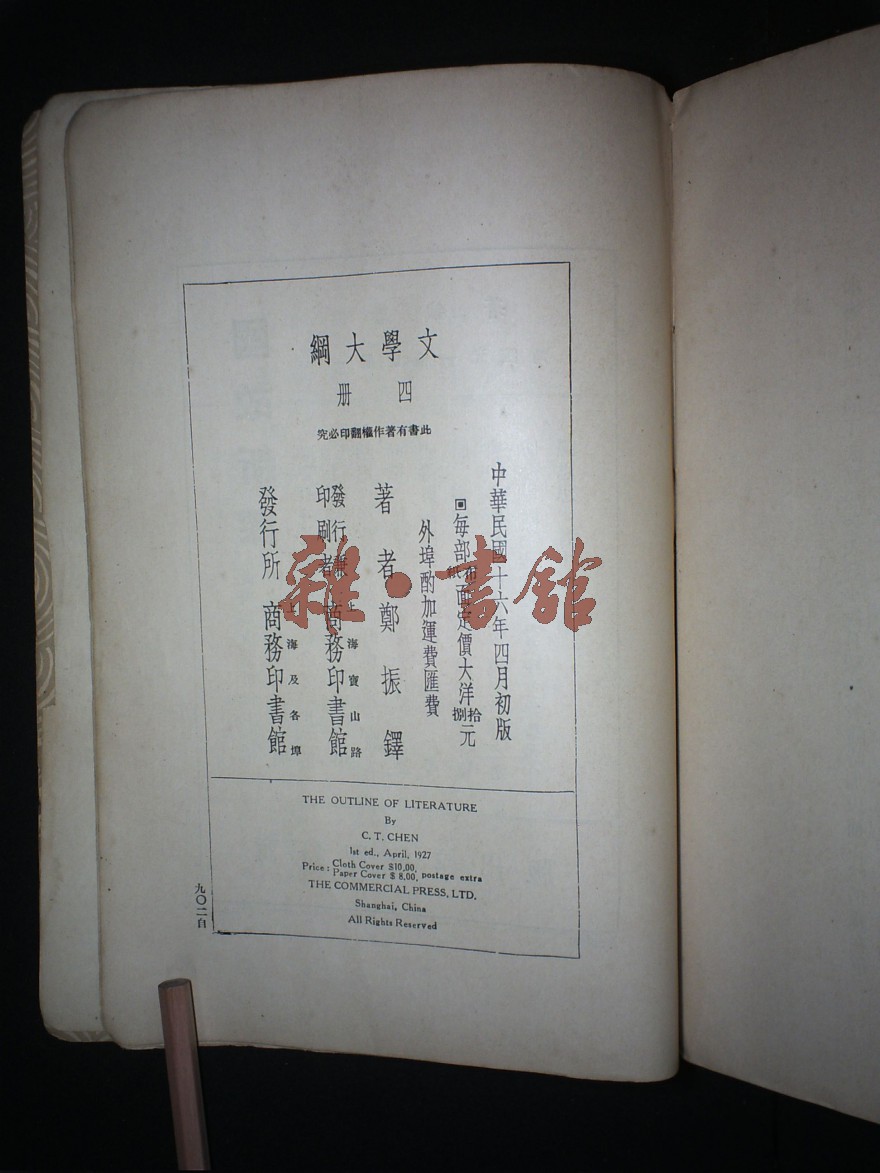 文學大綱
四册
此書有著作權翻印必究
中華民國十六年四月初版
每部布紙面定價大洋拾捌元
外埠酌加運費匯費
著者 鄭振鐸
發行兼印刷者 上海寶山路 商務印書館
發行所 上海及各埠 商務印書館
THE OUTLINE OF LITERATURE
By
C. T. CHEN
1st ed., April, 1927
Price: Cloth Cover $10.00,
Paper Cover $ 8.00, postage extra
THE COMMERCIAL PRESS, LTD.
Shanghai, China
All Rights Reserved
九〇二自
雜·書館